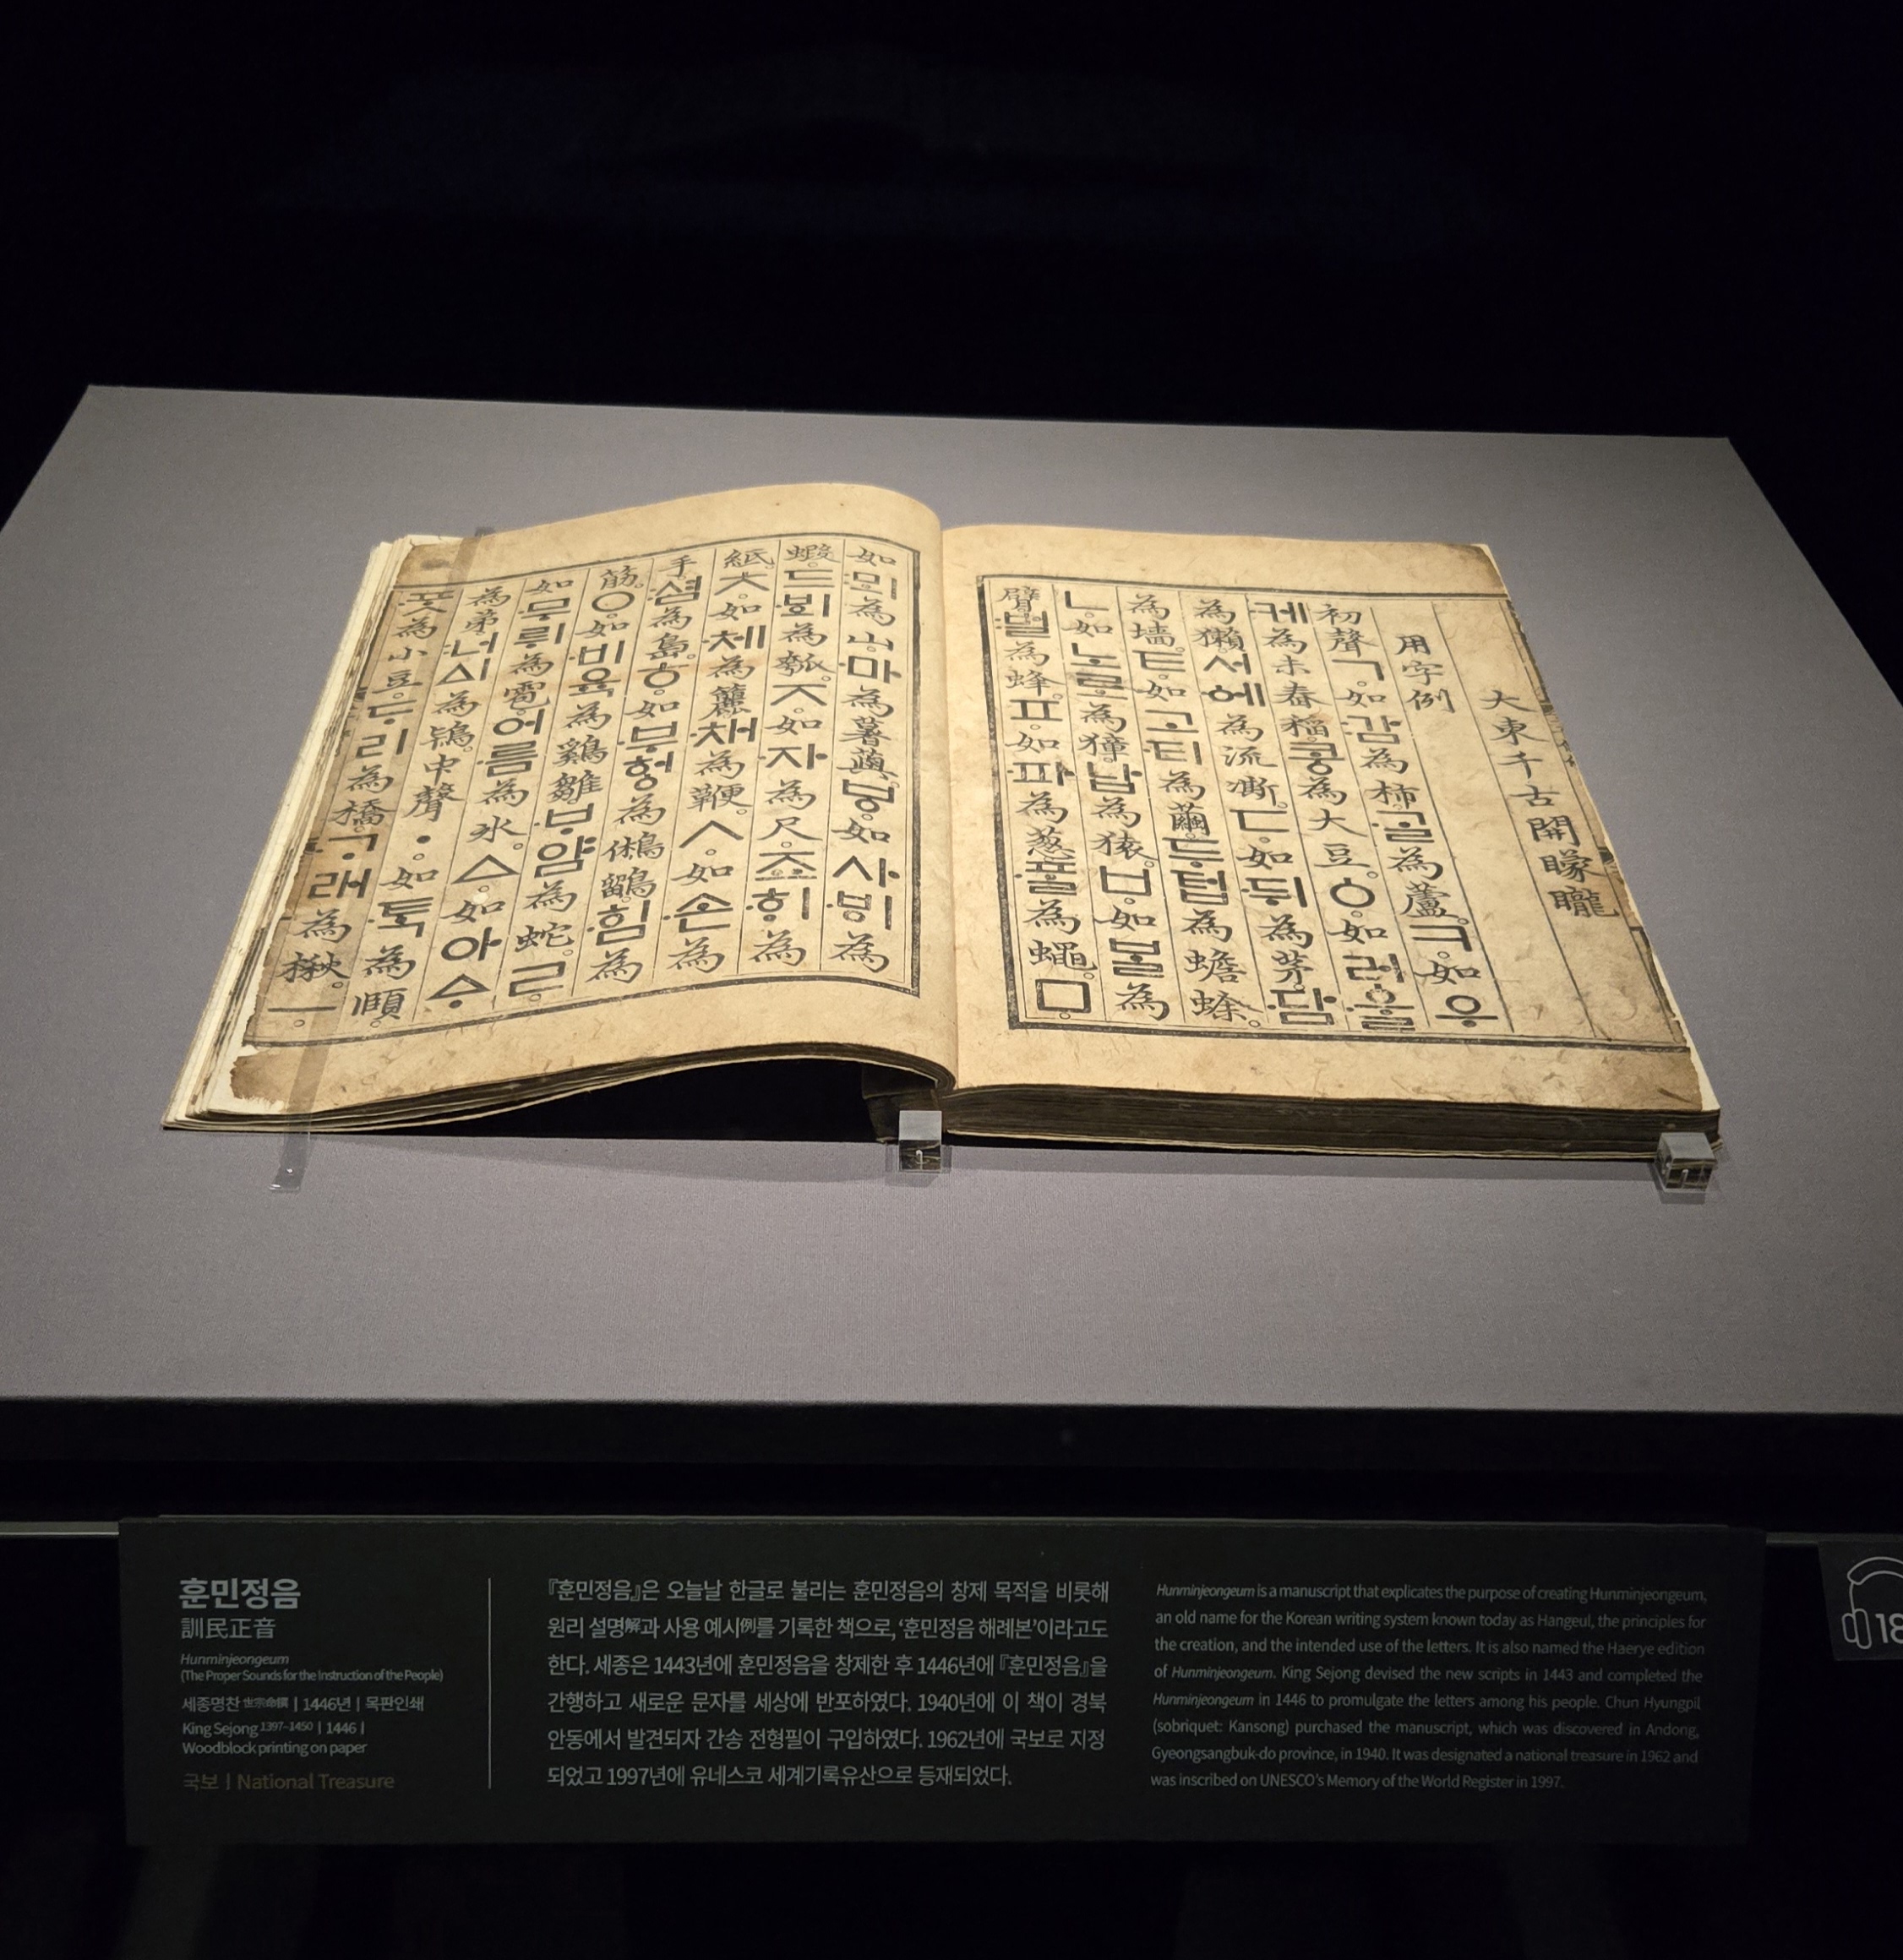 大東千古開矇矓
用字例
初聲ㄱ。如:감為柿。·ᄀᆞᆯ為蘆。ㅋ。如우
·케為未舂稻。콩為大豆。ㆁ。如러·울
為獺。서·에為流凘。ㄷ。如·뒤為茅。·담
為墻。ㅌ。如고·티為繭。두텁為蟾蜍。
ㄴ。如노로為獐。납為猿。ㅂ。如ᄇᆞᆯ為
臂。:벌為蜂。ㅍ。如·파為葱。·ᄑᆞᆯ為蠅。ㅁ。
如:뫼為山。·마為薯藇。ㅸ。如사·ᄫᅵ為
蝦。드·ᄫᅴ為瓠。ㅈ。如·자為尺。죠·ᄒᆡ為
紙。ㅊ。如·체為籭。채為鞭。ㅅ。如·손為
手。:셤為島。ㅎ。如·부헝為鵂鶹。·힘為
筋。ㅇ。如·비육為鷄雛。·ᄇᆞ얌為蛇。ㄹ。
如·무뤼為雹。어·름為氷。ㅿ。如아ᅀᆞ
為弟。:너ᅀᅵ為鴇。中聲ㆍ。如·ᄐᆞᆨ為頤。
·ᄑᆞᆺ為小豆。ᄃᆞ리為橋。·ᄀᆞ래為楸。ㅡ。
훈민정음
訓民正音
Hunminjeongeum
(The Proper Sounds for the Instruction of the People)
세종명찬 世宗命撰 | 1446년 | 목판인쇄
King Sejong 1397-1450 | 1446 |
Woodblock printing on paper
국보 | National Treasure
『훈민정음』은 오늘날 한글로 불리는 훈민정음의 창제 목적을 비롯해
원리 설명解과 사용 예시例를 기록한 책으로, ‘훈민정음 해례본’이라고도
한다. 세종은 1443년에 훈민정음을 창제한 후 1446년에 『훈민정음』을
간행하고 새로운 문자를 세상에 반포하였다. 1940년에 이 책이 경북
안동에서 발견되자 간송 전형필이 구입하였다. 1962년에 국보로 지정
되었고 1997년에 유네스코 세계기록유산으로 등재되었다.
Hunminjeongeum is a manuscript that explicates the purpose of creating Hunminjeongeum,
an old name for the Korean writing system known today as Hangeul, the principles for
the creation, and the intended use of the letters. It is also named the Haerye edition
of Hunminjeongeum. King Sejong devised the new scripts in 1443 and completed the
Hunminjeongeum in 1446 to promulgate the letters among his people. Chun Hyungpil
(sobriquet: Kansong) purchased the manuscript, which was discovered in Andong,
Gyeongsangbuk-do province, in 1940. It was designated a national treasure in 1962 and
was inscribed on UNESCO's Memory of the World Register in 1997.